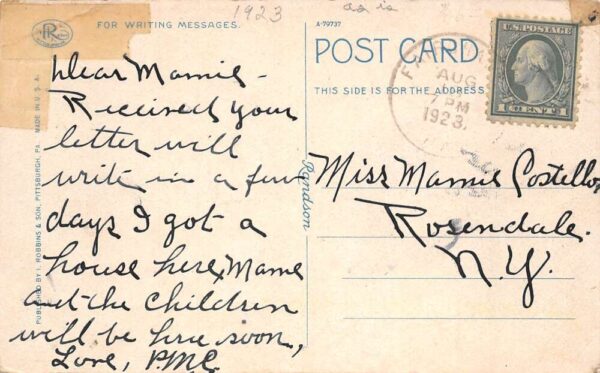 1923
as is
FOR WRITING MESSAGES.
A-79737
POST CARD
THIS SIDE IS FOR THE ADDRESS
U.S. POSTAGE
1 CENT 1
AUG
7 PM
1923
Dear Mamie -
Received your
letter will
write in a few
days I got a
house here, Mame
and the children
will be here soon,
Love, PMC.
Miss Mamie Costello,
Rosendale.
N.Y.
PUBLISHED BY I. ROBBINS & SON, PITTSBURGH, PA. MADE IN U.S.A.